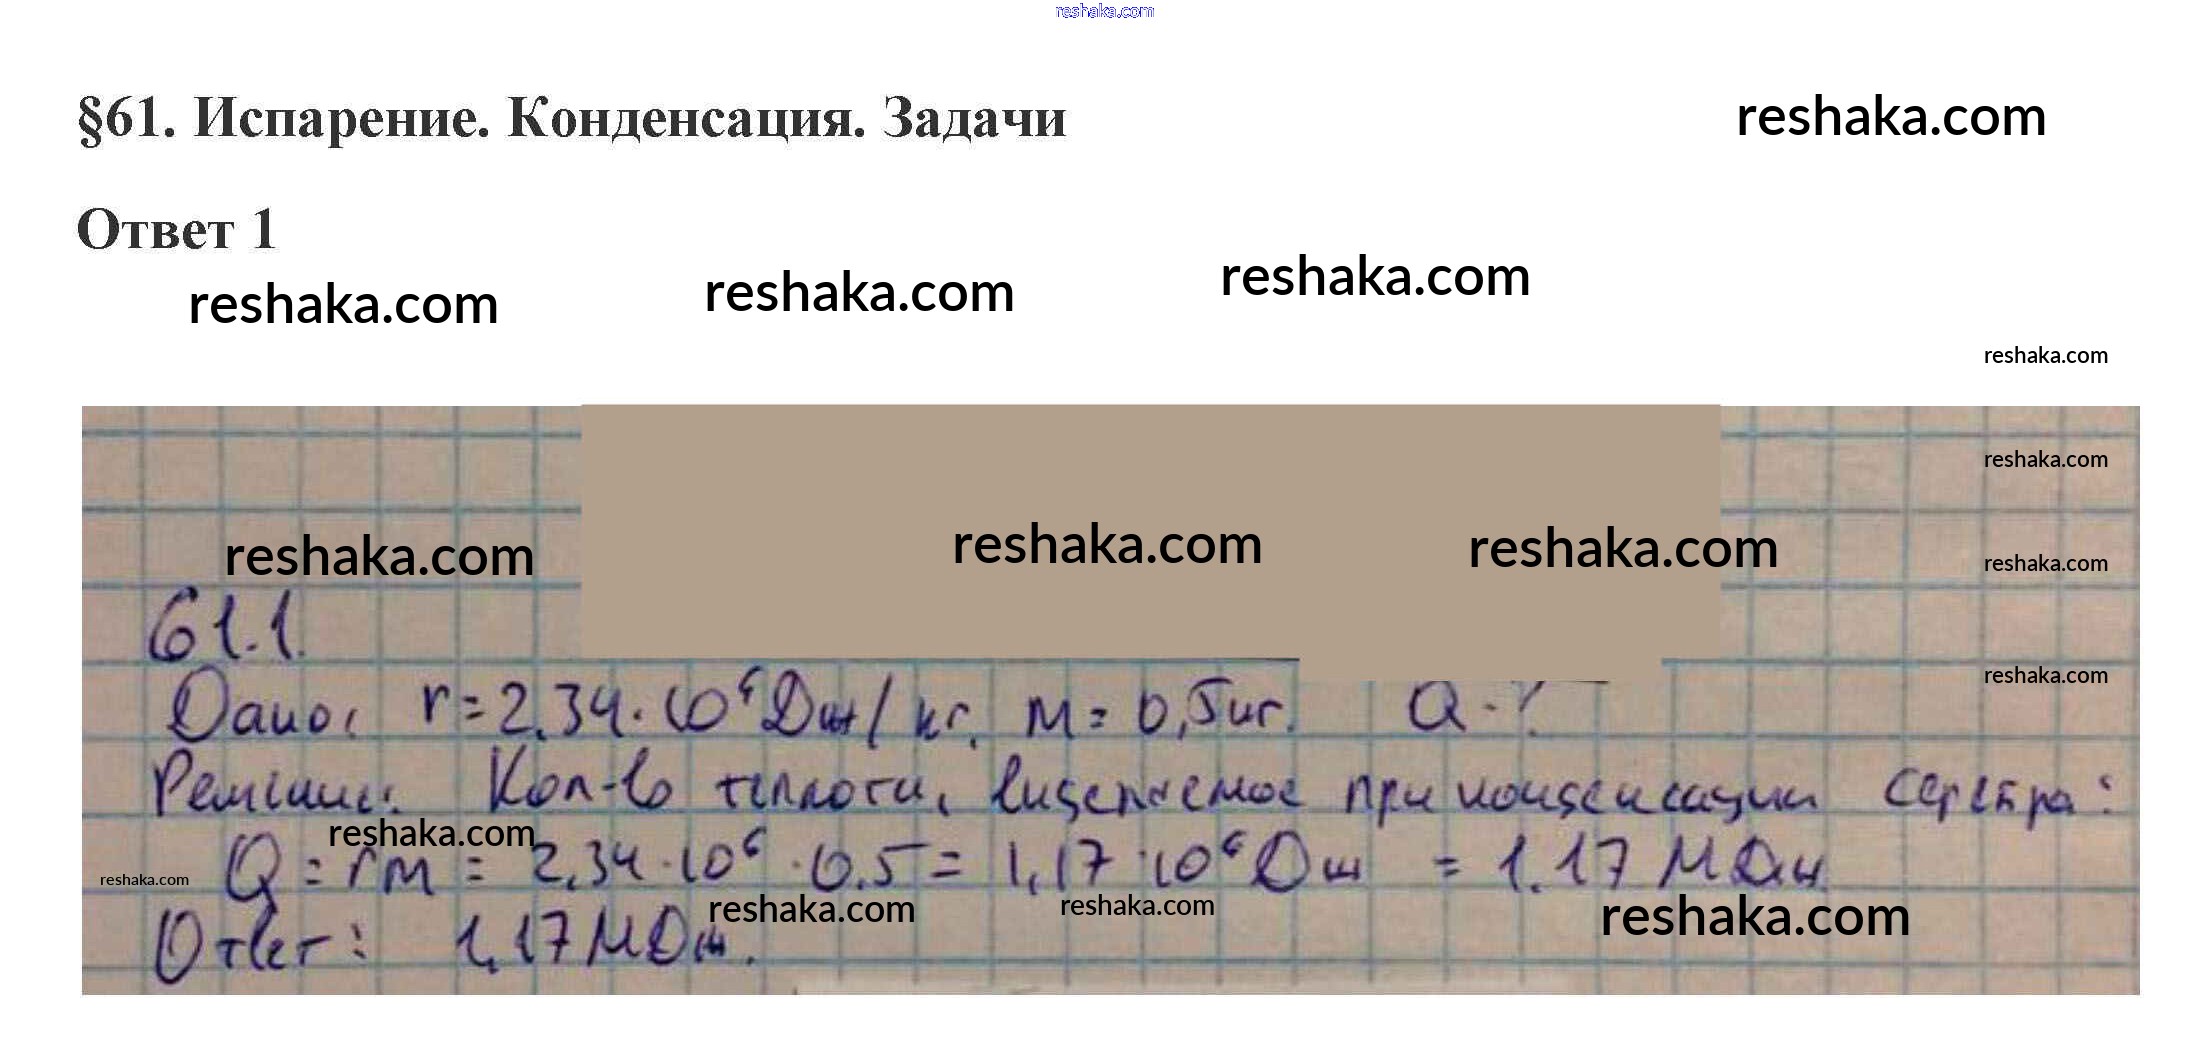 reshaka.com
§61. Испарение. Конденсация. Задачи
reshaka.com
Ответ 1
reshaka.com reshaka.com reshaka.com
reshaka.com
reshaka.com
reshaka.com reshaka.com reshaka.com reshaka.com
61.1.
Дано: r = 2,34 · 10⁶ Дж/кг, m = 0,5 кг. Q - ?
reshaka.com
Решение: Кол-во теплоты, выделяемое при конденсации серебра:
reshaka.com
Q = rm = 2,34 · 10⁶ · 0,5 = 1,17 · 10⁶ Дж = 1,17 МДж
reshaka.com reshaka.com reshaka.com reshaka.com
Ответ: 1,17 МДж.